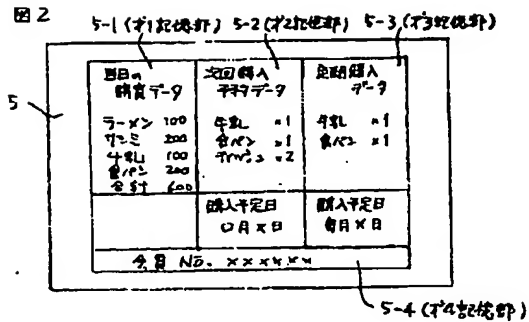 図2
5-1(才1記憶部) 5-2(才2記憶部) 5-3(才3記憶部)
5
当日の
購買データ
ラーメン 100
サシミ 200
牛乳 100
食パン 200
合計 600
次回購入
予定データ
牛乳 ×1
食パン ×1
×2
定期購入
データ
牛乳 ×1
食パン ×1
購入予定日
○月×日
購入予定日
毎月×日
会員 No. ××××××
5-4(才4記憶部)